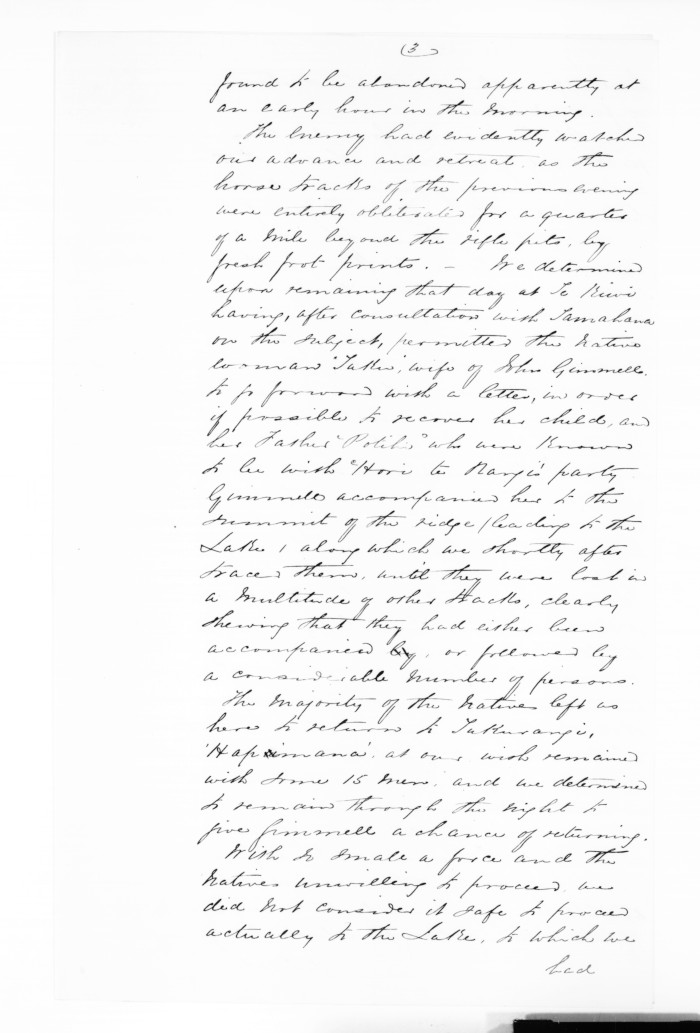 (3)
found to be abandoned apparently at
an early hour in the morning.
The Enemy had evidently watched
our advance and retreat, as the
horse tracks of the previous evening
were entirely obliterated for a quarter
of a mile beyond the rifle pits, by
fresh foot prints. — We determined
upon remaining that day at Te Kiwi
having, after consultation with Tamahana
on the subject, permitted the Native
woman 'Takie', wife of John Gimmell.
to go forward with a letter, in order
if possible to recover her child, and
her Father who were Known
to be with "Hori te Rangi's party
Gimmell accompanied her to the
summit of the ridge (leading to the
Lake) along which we shortly after
traced them, until they were lost in
a Multitude of other tracks, clearly
shewing that they had either been
accompanied by, or followed by
a considerable number of persons.
The Majority of the Natives left us
here to return to Takurangi,
'Hapimana' at our wish remained
with some 15 Men, and we determined
to remain through the night to
give Gimmell a chance of returning.
With so small a force and the
Natives unwilling to proceed, we
did not consider it safe to proceed
actually to the Lake, to which we
had